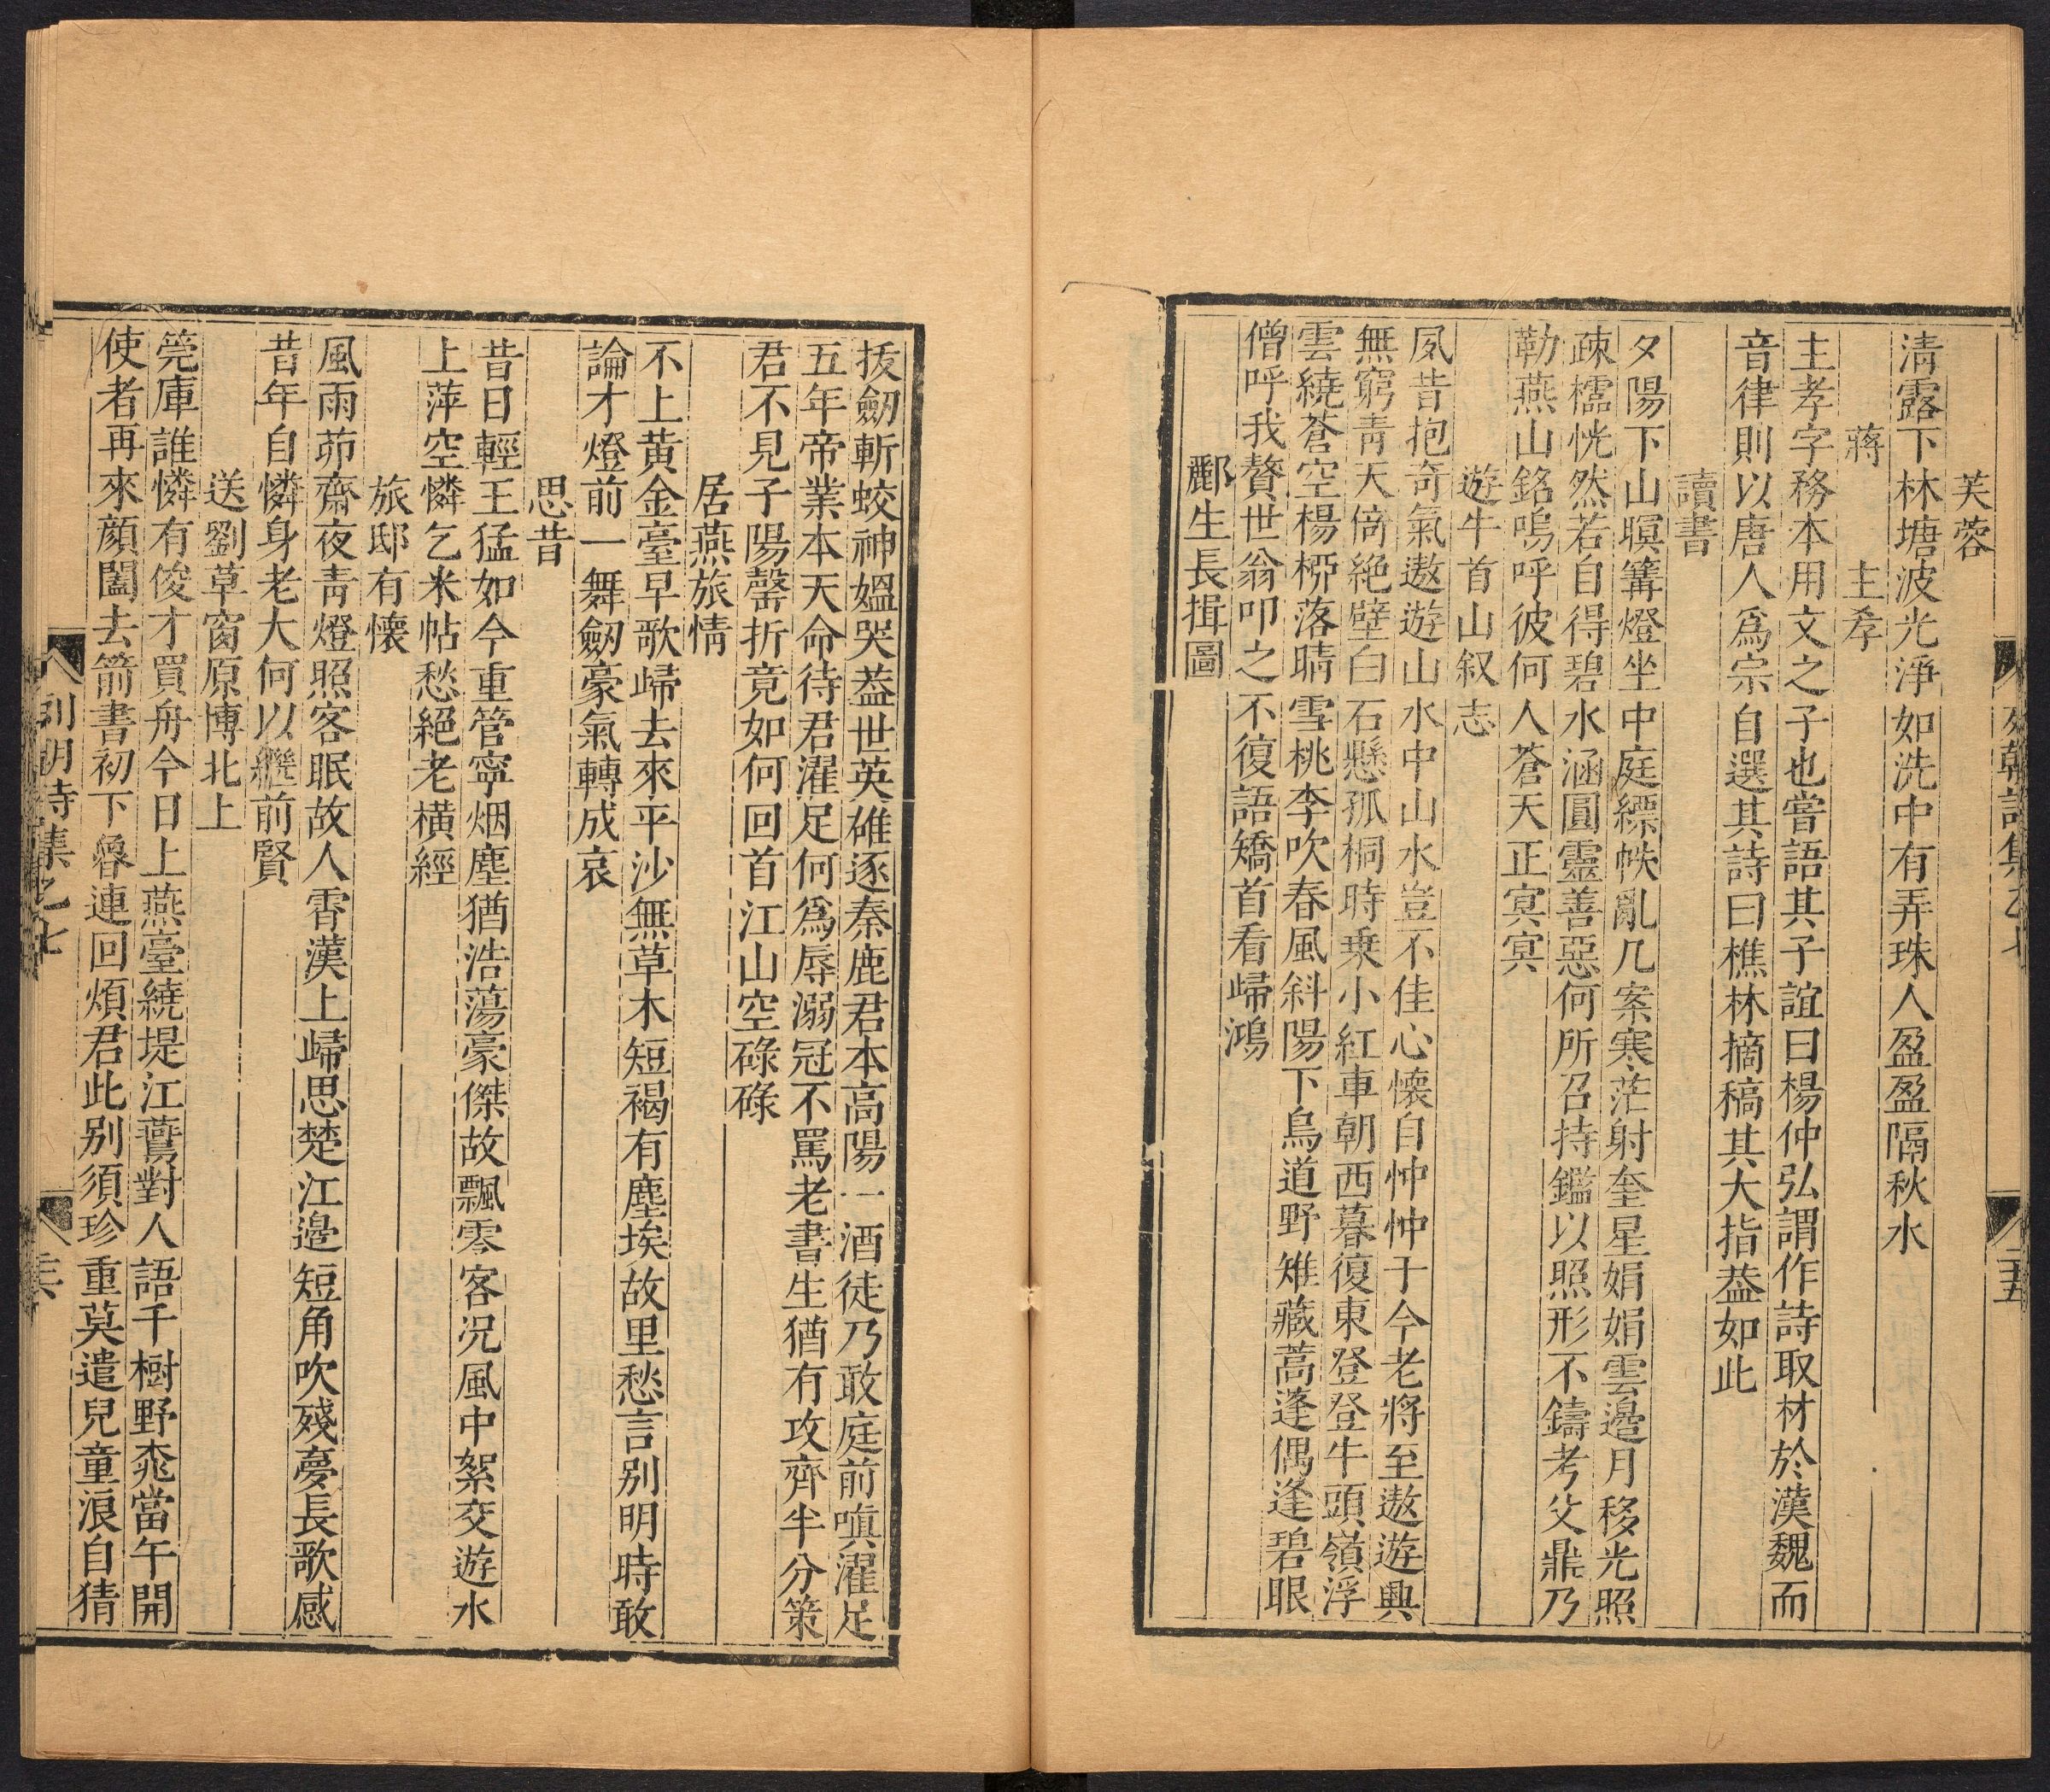 芙蓉
清露下林塘波光淨如洗中有弄珠人盈盈隔秋水
蔣　主孝
主孝字務本用文之子也嘗語其子誼曰楊仲弘謂作詩取材於漢魏而
音律則以唐人爲宗自選其詩曰樵林摘稿其大指葢如此
讀書
夕陽下山暝篝燈坐中庭縹帙亂几案寒茫射奎星娟娟雲邊月移光照
疎櫺恍然若自得碧水涵圓靈善惡何所召持鑑以照形不鑄考父鼎乃
勒燕山銘嗚呼彼何人蒼天正冥冥
遊牛首山叙志
夙昔抱奇氣遨遊山水中山水豈不佳心懷自忡忡于今老將至遨遊興
無窮靑天倚絶壁白石懸孤桐時乗小紅車朝西暮復東登登牛頭嶺浮
雲繞蒼空楊桺落晴雪桃李吹春風斜陽下鳥道野雉藏蒿蓬偶逢碧眼
僧呼我贅世翁叩之不復語矯首看歸鴻
酈生長揖圖
拔劒斬蛟神媼哭葢世英雄逐秦鹿君本高陽一酒徒乃敢庭前嗔濯足
五年帝業本天命待君濯足何爲辱溺冠不罵老書生猶有攻齊半分策
君不見子陽罄折竟如何回首江山空碌碌
居燕旅情
不上黄金臺早歌歸去來平沙無草木短褐有塵埃故里愁言别明時敢
論才燈前一舞劒豪氣轉成哀
思昔
昔日輕王猛如今重管寧烟塵猶浩蕩豪傑故飄零客況風中絮交遊水
上萍空憐乞米帖愁絕老橫經
旅邸有懷
風雨茆齋夜靑燈照客眠故人霄漢上歸思楚江邊短角吹殘夢長歌感
昔年自憐身老大何以繼前賢
送劉草窗原博北上
筦庫誰憐有俊才買舟今日上燕臺繞堤江鷰對人語千樹野桃當午開
使者再來顔闔去箭書初下魯連回煩君此别須珍重莫遣兒童浪自猜
列朝詩集乙七
二十五
列朝詩集乙七